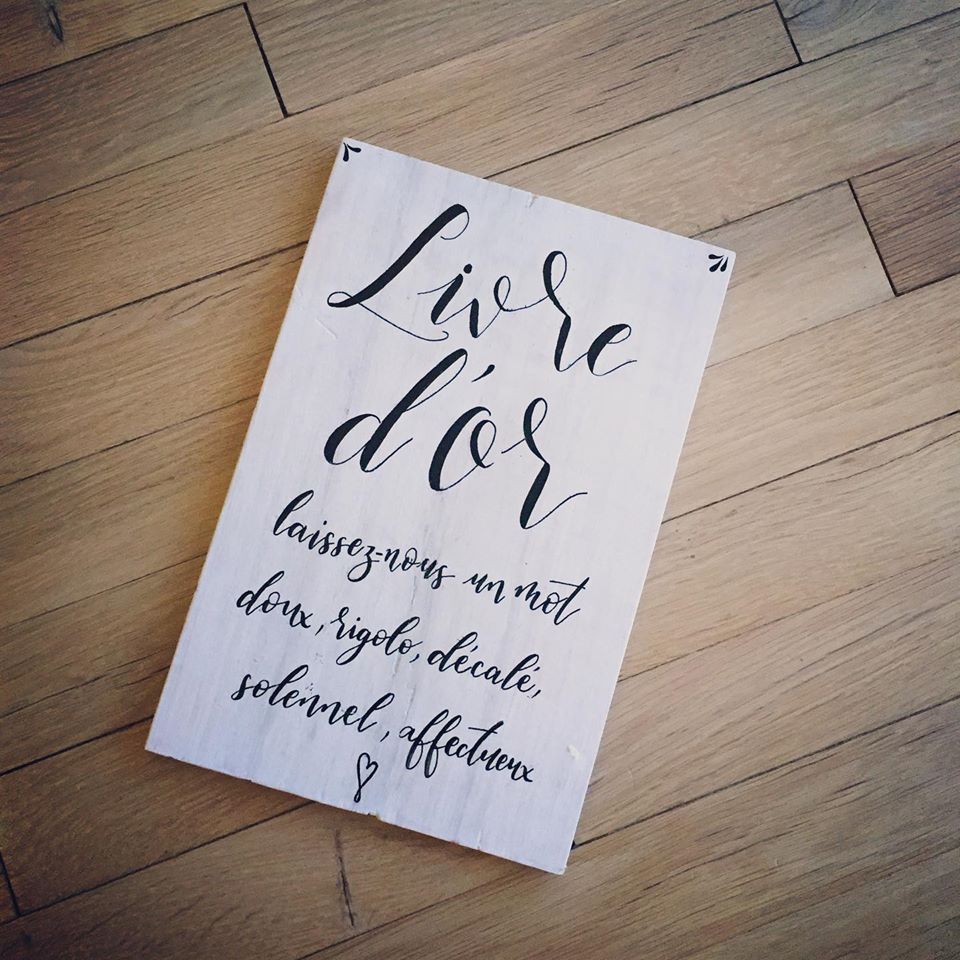 Livre
d'or
laissez-nous un mot
doux, rigolo, décalé,
solennel, affectueux